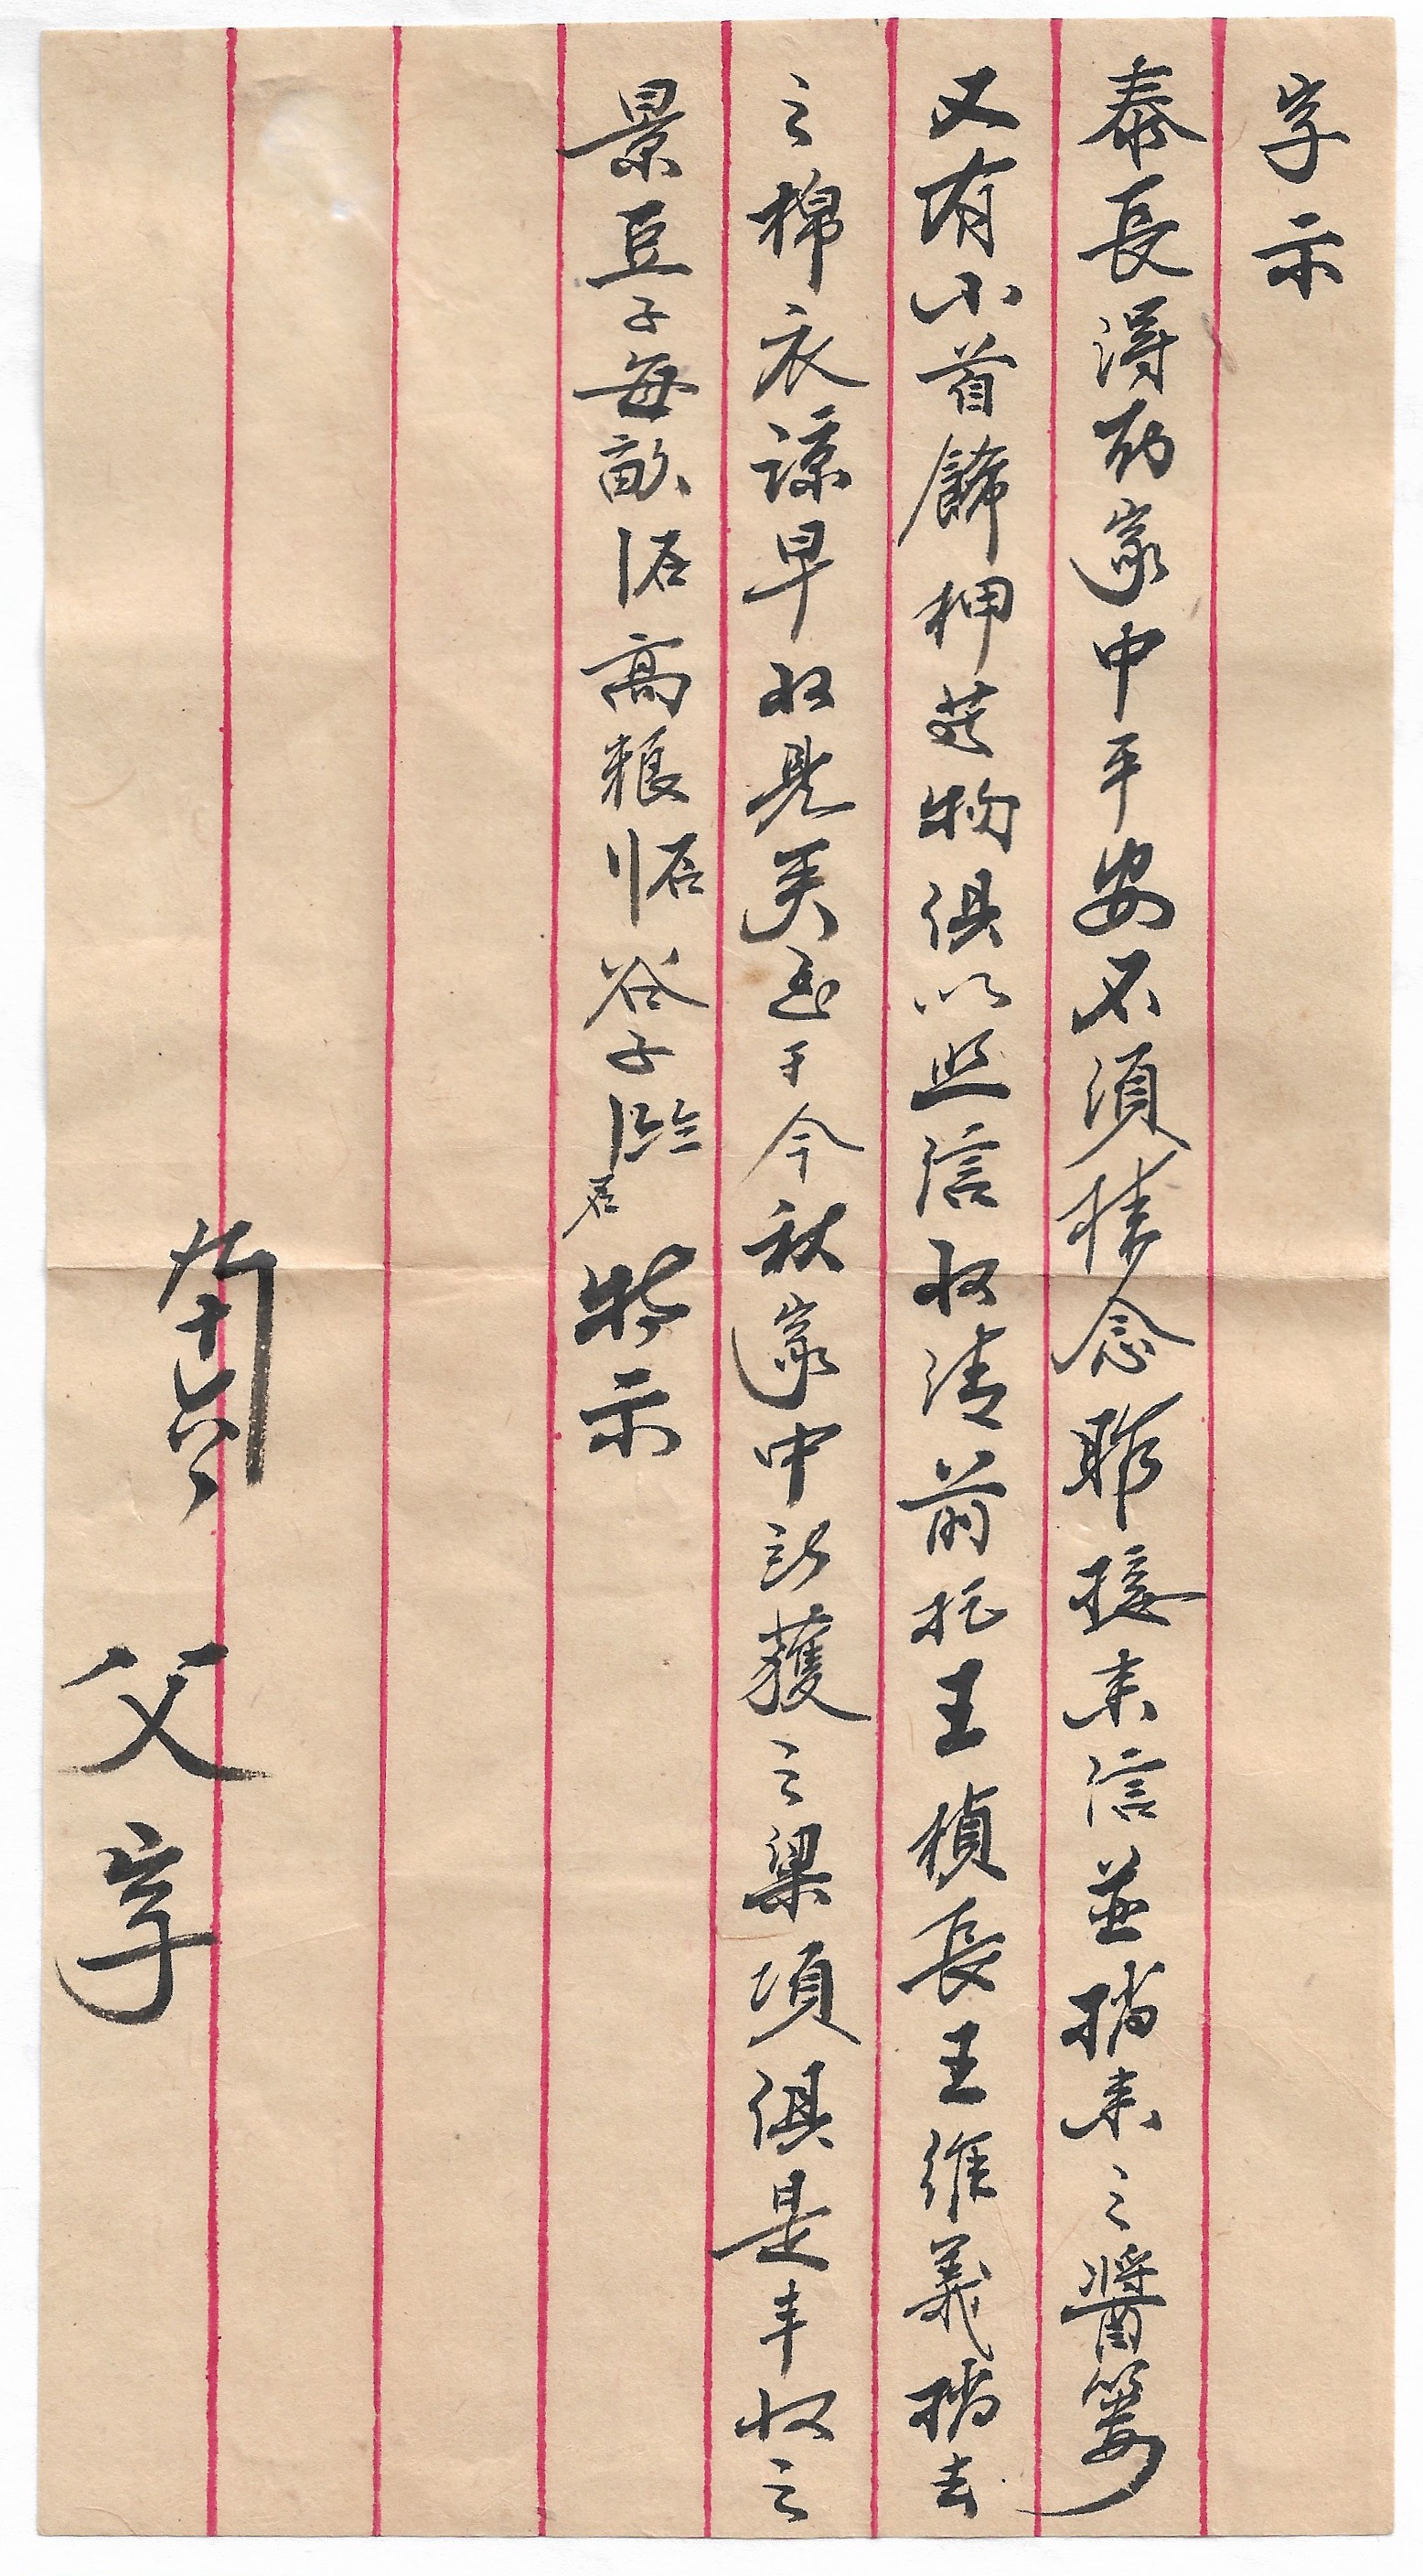 字示
泰長得知家中平安不須掛念昨接來信並捎來之醬簍
又有小首飾押花物俱以照信收清前托王楨長王維義捎去
之棉衣諒早收是矣至于今秋家中所獲之梁項俱是丰收之
景豆子每畝 石高粮 石谷子 石特示
九月十六日
父字